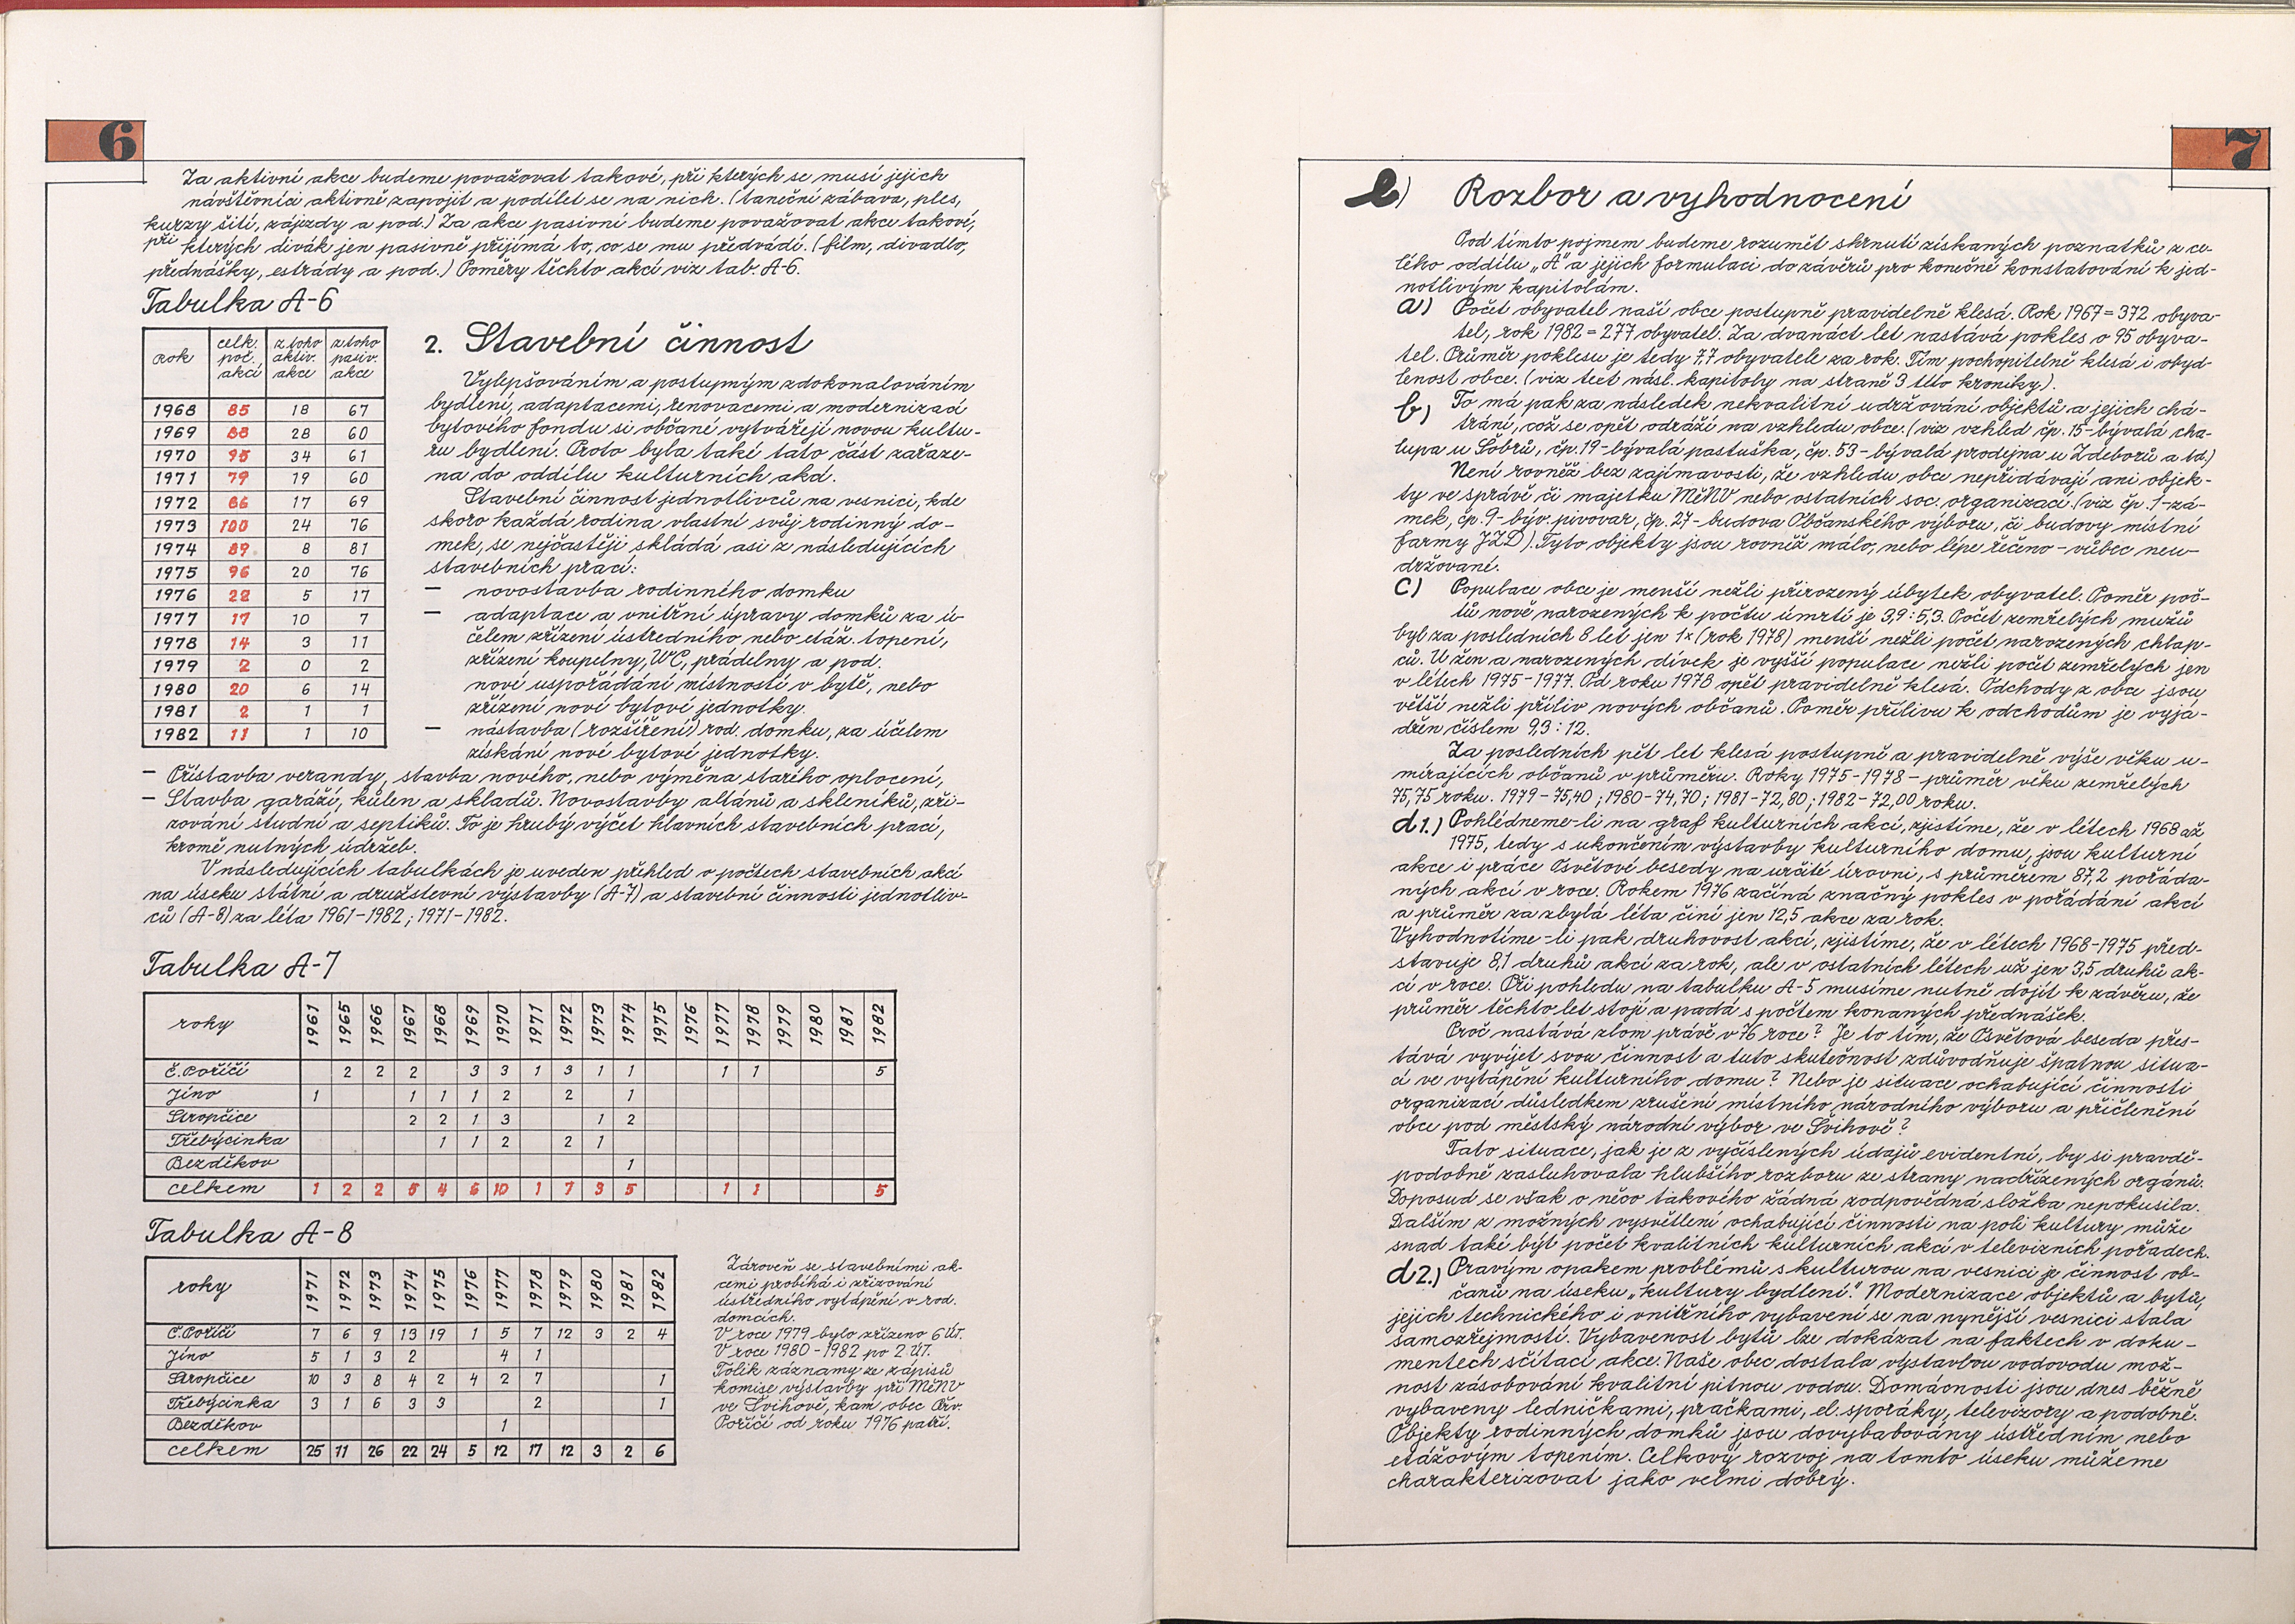 6
Za aktivní akce budeme považovat takové, při kterých se musí jejich
návštěvníci aktivně zapojit a podílet se na nich. (taneční zábava, ples,
kurzy šití, zájezdy a pod.) Za akce pasivní budeme považovat akce takové,
při kterých divák jen pasivně přijímá to, co se mu předvádí. (film, divadlo,
přednášky, estrády a pod.) Poměry těchto akcí viz tab. A-6.
Tabulka A-6
rok celk. poč. akcí z toho aktiv. akce z toho pasiv. akce
1968 85 18 67
1969 88 28 60
1970 95 34 61
1971 79 19 60
1972 86 17 69
1973 100 24 76
1974 89 8 81
1975 96 20 76
1976 22 5 17
1977 17 10 7
1978 14 3 11
1979 2 0 2
1980 20 6 14
1981 2 1 1
1982 11 1 10
2. Stavební činnost
Vylepšováním a postupným zdokonalováním
bydlení, adaptacemi, renovacemi a modernizací
bytového fondu si občané vytvářejí novou kultu-
ru bydlení. Proto byla také tato část zařaze-
na do oddílu kulturních akcí.
Stavební činnost jednotlivců na vesnici, kde
skoro každá rodina vlastní svůj rodinný do-
mek, se nejčastěji skládá asi z následujících
stavebních prací:
– novostavba rodinného domku
– adaptace a vnitřní úpravy domků za ú-
čelem zřízení ústředního nebo etáž. topení,
zřízení koupelny, WC, prádelny a pod.
nové uspořádání místností v bytě, nebo
zřízení nové bytové jednotky.
– nástavba (rozšíření) rod. domku, za účelem
získání nové bytové jednotky.
– Přístavba verandy, stavba nového, nebo výměna starého oplocení,
– Stavba garáží, kůlen a skladů. Novostavby altánů a skleníků, zři-
zování studní a septiků. To je hrubý výčet hlavních stavebních prací,
kromě nutných údržeb.
V následujících tabulkách je uveden přehled o počtech stavebních akcí
na úseku státní a družstevní výstavby (A-7) a stavební činnosti jednotliv-
ců (A-8) za léta 1961-1982; 1971-1982.
Tabulka A-7
roky 1961 1965 1966 1967 1968 1969 1970 1971 1972 1973 1974 1975 1976 1977 1978 1979 1980 1981 1982
Č. Poříčí 2 2 2 3 3 1 3 1 1 1 1 5
Jíno 1 1 1 1 2 2 1
Stropčice 2 2 1 3 1 2
Třebýcinka 1 1 2 2 1
Bezděkov 1
celkem 1 2 2 5 4 6 10 1 7 3 5 1 1 5
Tabulka A-8
roky 1971 1972 1973 1974 1975 1976 1977 1978 1979 1980 1981 1982
Č. Poříčí 7 6 9 13 19 1 5 7 12 3 2 4
Jíno 5 1 3 2 4 1
Stropčice 10 3 8 4 2 4 2 7 1
Třebýcinka 3 1 6 3 3 2 1
Bezděkov 1
celkem 25 11 26 22 24 5 12 17 12 3 2 6
Zároveň se stavebními ak-
cemi probíhá i zřizování
ústředního vytápění v rod.
domcích.
V roce 1979 bylo zřízeno 6 ÚT.
V roce 1980-1982 po 2 ÚT.
Tolik záznamy ze zápisů
komise výstavby při MěNV
ve Švihově, kam obec Črv.
Poříčí od roku 1976 patří.
7
e) Rozbor a vyhodnocení
Pod tímto pojmem budeme rozumět shrnutí získaných poznatků z ce-
lého oddílu „A" a jejich formulaci do závěrů pro konečné konstatování k jed-
notlivým kapitolám.
a) Počet obyvatel naší obce postupně pravidelně klesá. Rok 1967=372 obyva-
tel, rok 1982=277 obyvatel. Za dvanáct let nastává pokles o 95 obyva-
tel. Průměr poklesu je tedy 7,7 obyvatele za rok. Tím pochopitelně klesá i obyd-
lenost obce. (viz text násl. kapitoly na straně 3 této kroniky).
b) To má pak za následek nekvalitní udržování objektů a jejich chá-
trání, což se opět odráží na vzhledu obce. (viz vzhled čp. 15-bývalá cha-
lupa u Sobrů, čp. 19-bývalá pastuška, čp. 53-bývalá prodejna u Zdeborů a td.)
Není rovněž bez zajímavosti, že vzhledu obce nepřidávají ani objek-
ty ve správě či majetku MěNV nebo ostatních soc. organizací (viz čp. 1-zá-
mek, čp. 9-býv. pivovar, čp. 27-budova Občanského výboru, či budovy místní
farmy JZD). Tyto objekty jsou rovněž málo, nebo lépe řečeno – vůbec neu-
držované.
c) Populace obce je menší nežli přirozený úbytek obyvatel. Poměr poč-
tů nově narozených k počtu úmrtí je 3,9:5,3. Počet zemřelých mužů
byl za posledních 8 let jen 1x (rok 1978) menší nežli počet narozených chlap-
ců. U žen a narozených dívek je vyšší populace nežli počet zemřelých jen
v létech 1975-1977. Od roku 1978 opět pravidelně klesá. Odchody z obce jsou
větší nežli příliv nových občanů. Poměr přílivu k odchodům je vyjá-
dřen číslem 9,3:12.
Za posledních pět let klesá postupně a pravidelně výše věku u-
mírajících občanů v průměru. Roky 1975-1978 – průměr věku zemřelých
75,75 roku. 1979-75,40; 1980-74,70; 1981-72,80; 1982-72,00 roku.
d1.) Pohlédneme-li na graf kulturních akcí, zjistíme, že v létech 1968 až
1975, tedy s ukončením výstavby kulturního domu, jsou kulturní
akce i práce Osvětové besedy na určité úrovni, s průměrem 87,2 pořáda-
ných akcí v roce. Rokem 1976 začíná značný pokles v pořádání akcí
a průměr za zbylá léta činí jen 12,5 akce za rok.
Vyhodnotíme-li pak druhovost akcí, zjistíme, že v létech 1968-1975 před-
stavuje 8,1 druhů akcí za rok, ale v ostatních létech už jen 3,5 druhů ak-
cí v roce. Při pohledu na tabulku A-5 musíme nutně dojít k závěru, že
průměr těchto let stojí a padá s počtem konaných přednášek.
Proč nastává zlom právě v 76 roce? Je to tím, že Osvětová beseda přes-
tává vyvíjet svou činnost a tuto skutečnost zdůvodňuje špatnou situa-
cí ve vytápění kulturního domu? Nebo je situace ochabující činnosti
organizací důsledkem zrušení místního národního výboru a přičlenění
obce pod městský národní výbor ve Švihově?
Tato situace, jak je z vyčíslených údajů evidentní, by si pravdě-
podobně zasluhovala hlubšího rozboru ze strany nadřízených orgánů.
Doposud se však o něco takového žádná zodpovědná složka nepokusila.
Dalším z možných vysvětlení ochabující činnosti na poli kultury může
snad také být počet kvalitních kulturních akcí v televizních pořadech.
d2.) Pravým opakem problémů s kulturou na vesnici je činnost ob-
čanů na úseku „kultury bydlení". Modernizace objektů a bytů,
jejich technického i vnitřního vybavení se na nynější vesnici stala
samozřejmostí. Vybavenost bytů lze dokázat na faktech v doku-
mentech sčítací akce. Naše obec dostala výstavbou vodovodu mož-
nost zásobování kvalitní pitnou vodou. Domácnosti jsou dnes běžně
vybaveny ledničkami, pračkami, el. sporáky, televizory a podobně.
Objekty rodinných domků jsou dovybabovány ústředním nebo
etážovým topením. Celkový rozvoj na tomto úseku můžeme
charakterizovat jako velmi dobrý.